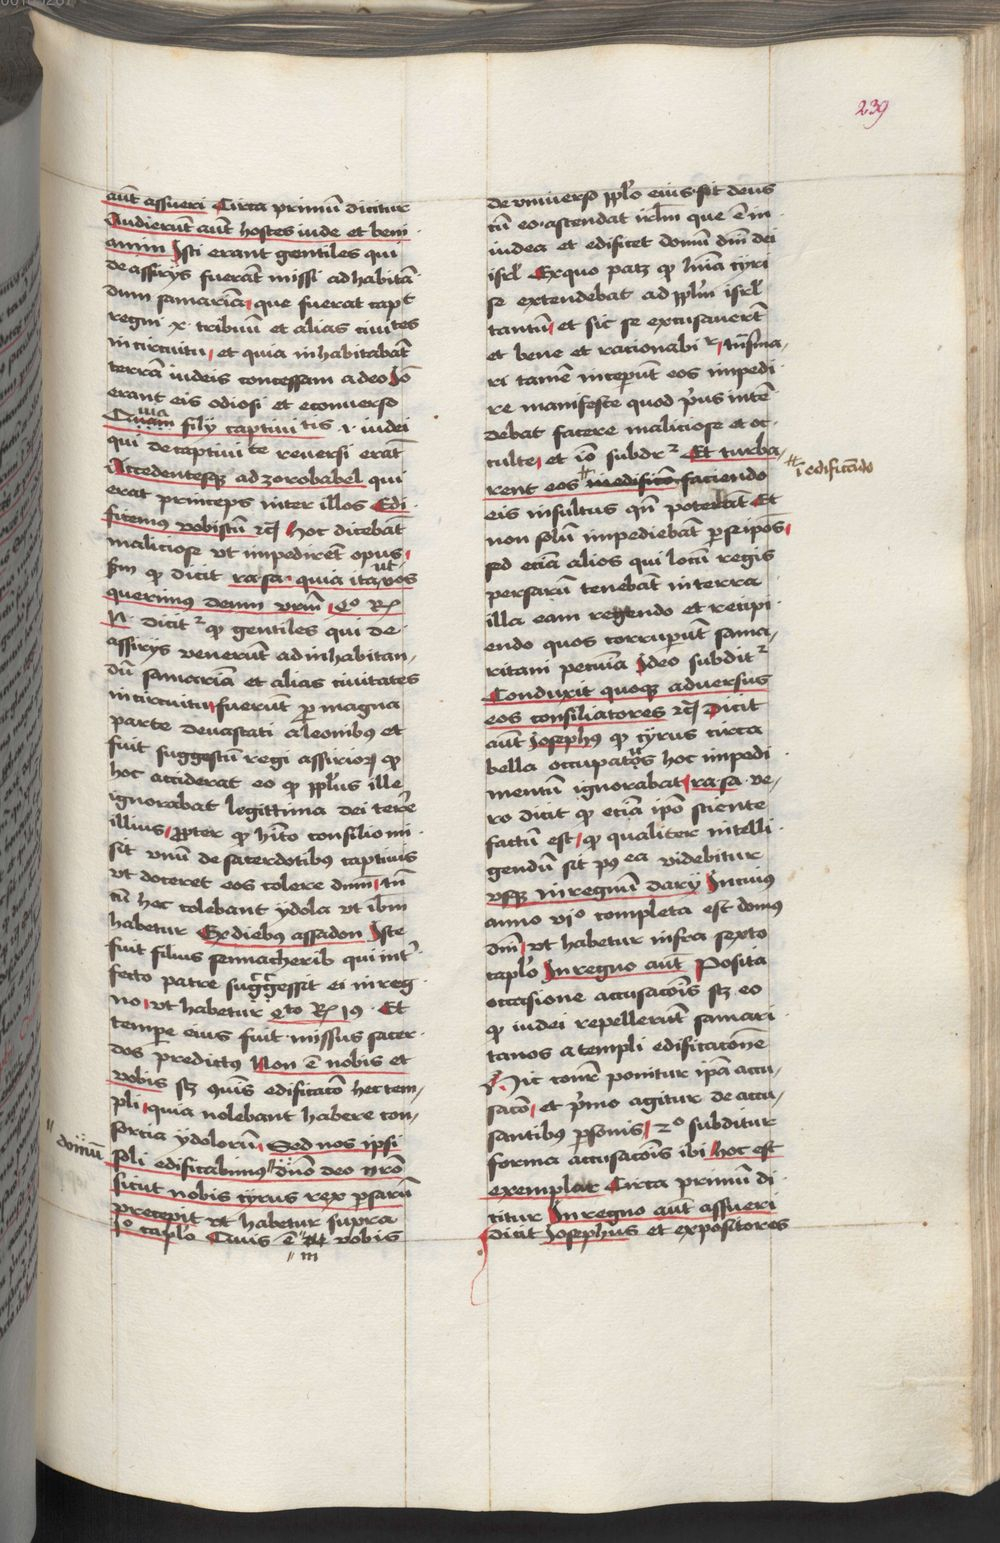 239
aūt assueri Circa primū dicitur
Audierūt aūt hostes iude et beni
amin Isti erant gentiles qui
de assirijs fuerāt missi ad habitā
dum samariā, que fuerat cap̄t
regni x. tribuū et alias ciuites
in circuitu, et quia inhabitabāt
terrā iudeis concessam a deo Iō
erant eis odiosi et econuerso
filij captiui tis .i. iudei
qui de captiui te reuersi erāt
Accedentesq̄ ad zorobabel qui
erat princeps inter illos Edi
ficemus vobiscū rc̄ Hoc dicebāt
maliciose vt impedirēt opus,
Sm̄ qd dicit ra. sa. quia ita ut vos
querimus deum vrm̄, 4o R
17. dicit2 qd gentiles qui de
assirijs venerūt ad inhabitan,
dū samariā et alias ciuitates
in circuitu, fuerūt p magna
parte deuastati a leonibus et
fuit suggestū regi assiriorꝝ qd
hoc acciderat eo qd ppl's ille
ignorabat legittima dei terre
illius, ppter qd hīto consilio mi
sit vnū de sacerdotibus captiuis
vt doceret eos colere dnm̄, tn̄
cū hec colebant ydola vt ibm̄
habetur Ex diebus assadon Iste
fuit filius sennacherib qui int'
fecto patre suggessit ei in reg
no, vt habetur 4to R 19. Et
tempe eius fuit missus sacer
dos predictus Non ē nobis et
vobis sz quis edificacō hec tem,
pli, quia nolebant habere con,
sorcia ydolorū, Sed nos ipsi
" domū
soli edificabimus " dn̄o deo nr̄o
sicut nobis cyrus rex psarū
precepit vt habetur supra
Io caplo Cuius ē vobis
" in
de vniuerso pplo eius. sit deus
cū eo. ascendat irlm que ē in
iudea et edificet domū dnī dei
isrl Ex quo patz qd licn̄ia cyri
se extendebat ad pplm isrl
tantū, et sic se excusauerūt
et bene et racionabi r, 
ri tamē inceperūt eos impedi
re manifeste quod p'us intē
debat facere maliciose et oc
culte, et iō subdr2 Et turba,
# i edificādo
rent eos # faciendo
eis insultus qn̄ poterāt Et
non solū impediebāt p seipos,
sed eciā alios qui locū regis
persarū tenebāt in terra
illa eam regendo et recipi
endo quos corruperūt sama,
ritani pecunia Ideo subdit2
Conduxit quoq̄ aduersus
eos consiliatores rc̄ Dicit
aūt Josephus qd cyrus circa
bella occupatus hoc impedi
mentū ignorabat, ra. sa. ve,
ro dicit qd eciā ipo sciente
factū est, qd qualiter intelli
gendū sit p9 ea videbitur
vsq̄ in regnū darij In cuius
anno vjo completa est domus
dnī, vt habetur infra sexto
caplo In regno aūt Posita
occasione accusacōis sz eo
qd iudei repellerūt samari
tanos a templi edificacōne
Hic conr̄ ponitur ipā accu,
sacō, et p'mo agitur de accu,
santibus psonis, 2o subditur
forma accusacōis ibi Hoc est
exemplar Circa primum di
citur In regno aūt assueri
dicit Josephus et expositores